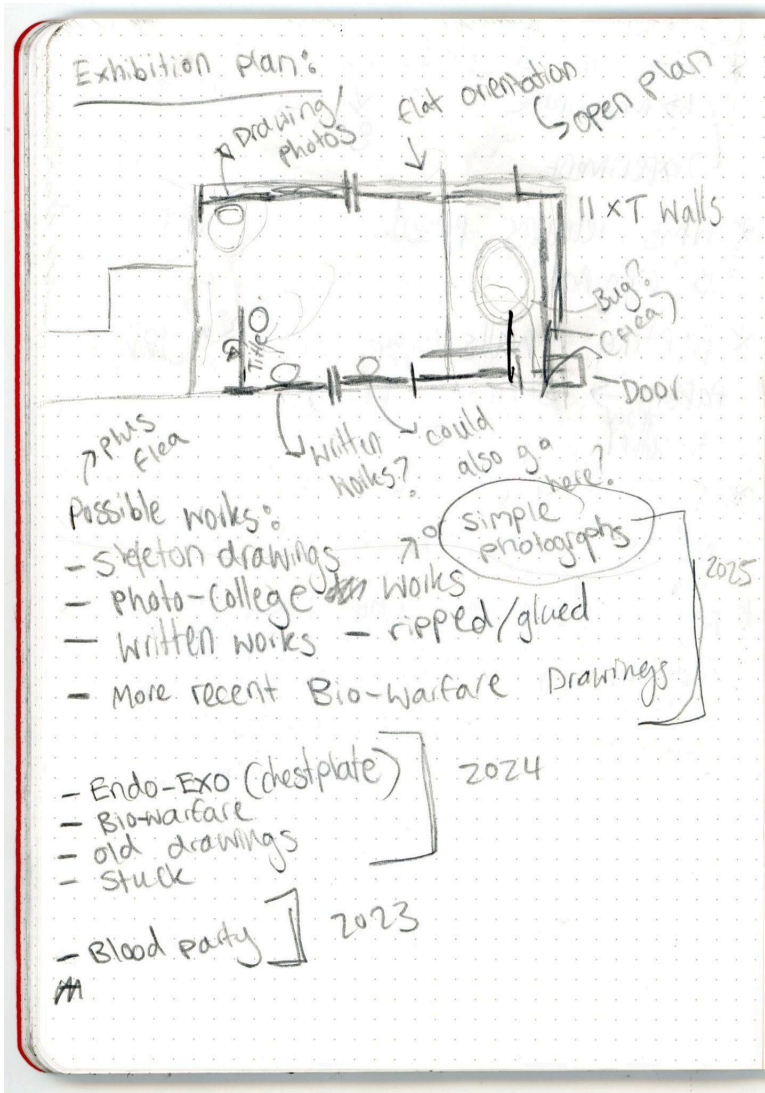 Exhibition plan:
Drawing/
photos
flat orientation
open plan
11 x T Walls
Bug?
(flea)
Title
Door
written
works?
could
also go
here?
plus
flea
Possible works:
- Skeleton drawings
simple
photographs
- Photo-College works
- Written works - ripped/glued
- More recent Bio-warfare Drawings
2025
- Endo-Exo (chestplate)
- Bio-warfare
- old drawings
- Stuck
2024
- Blood party
2023